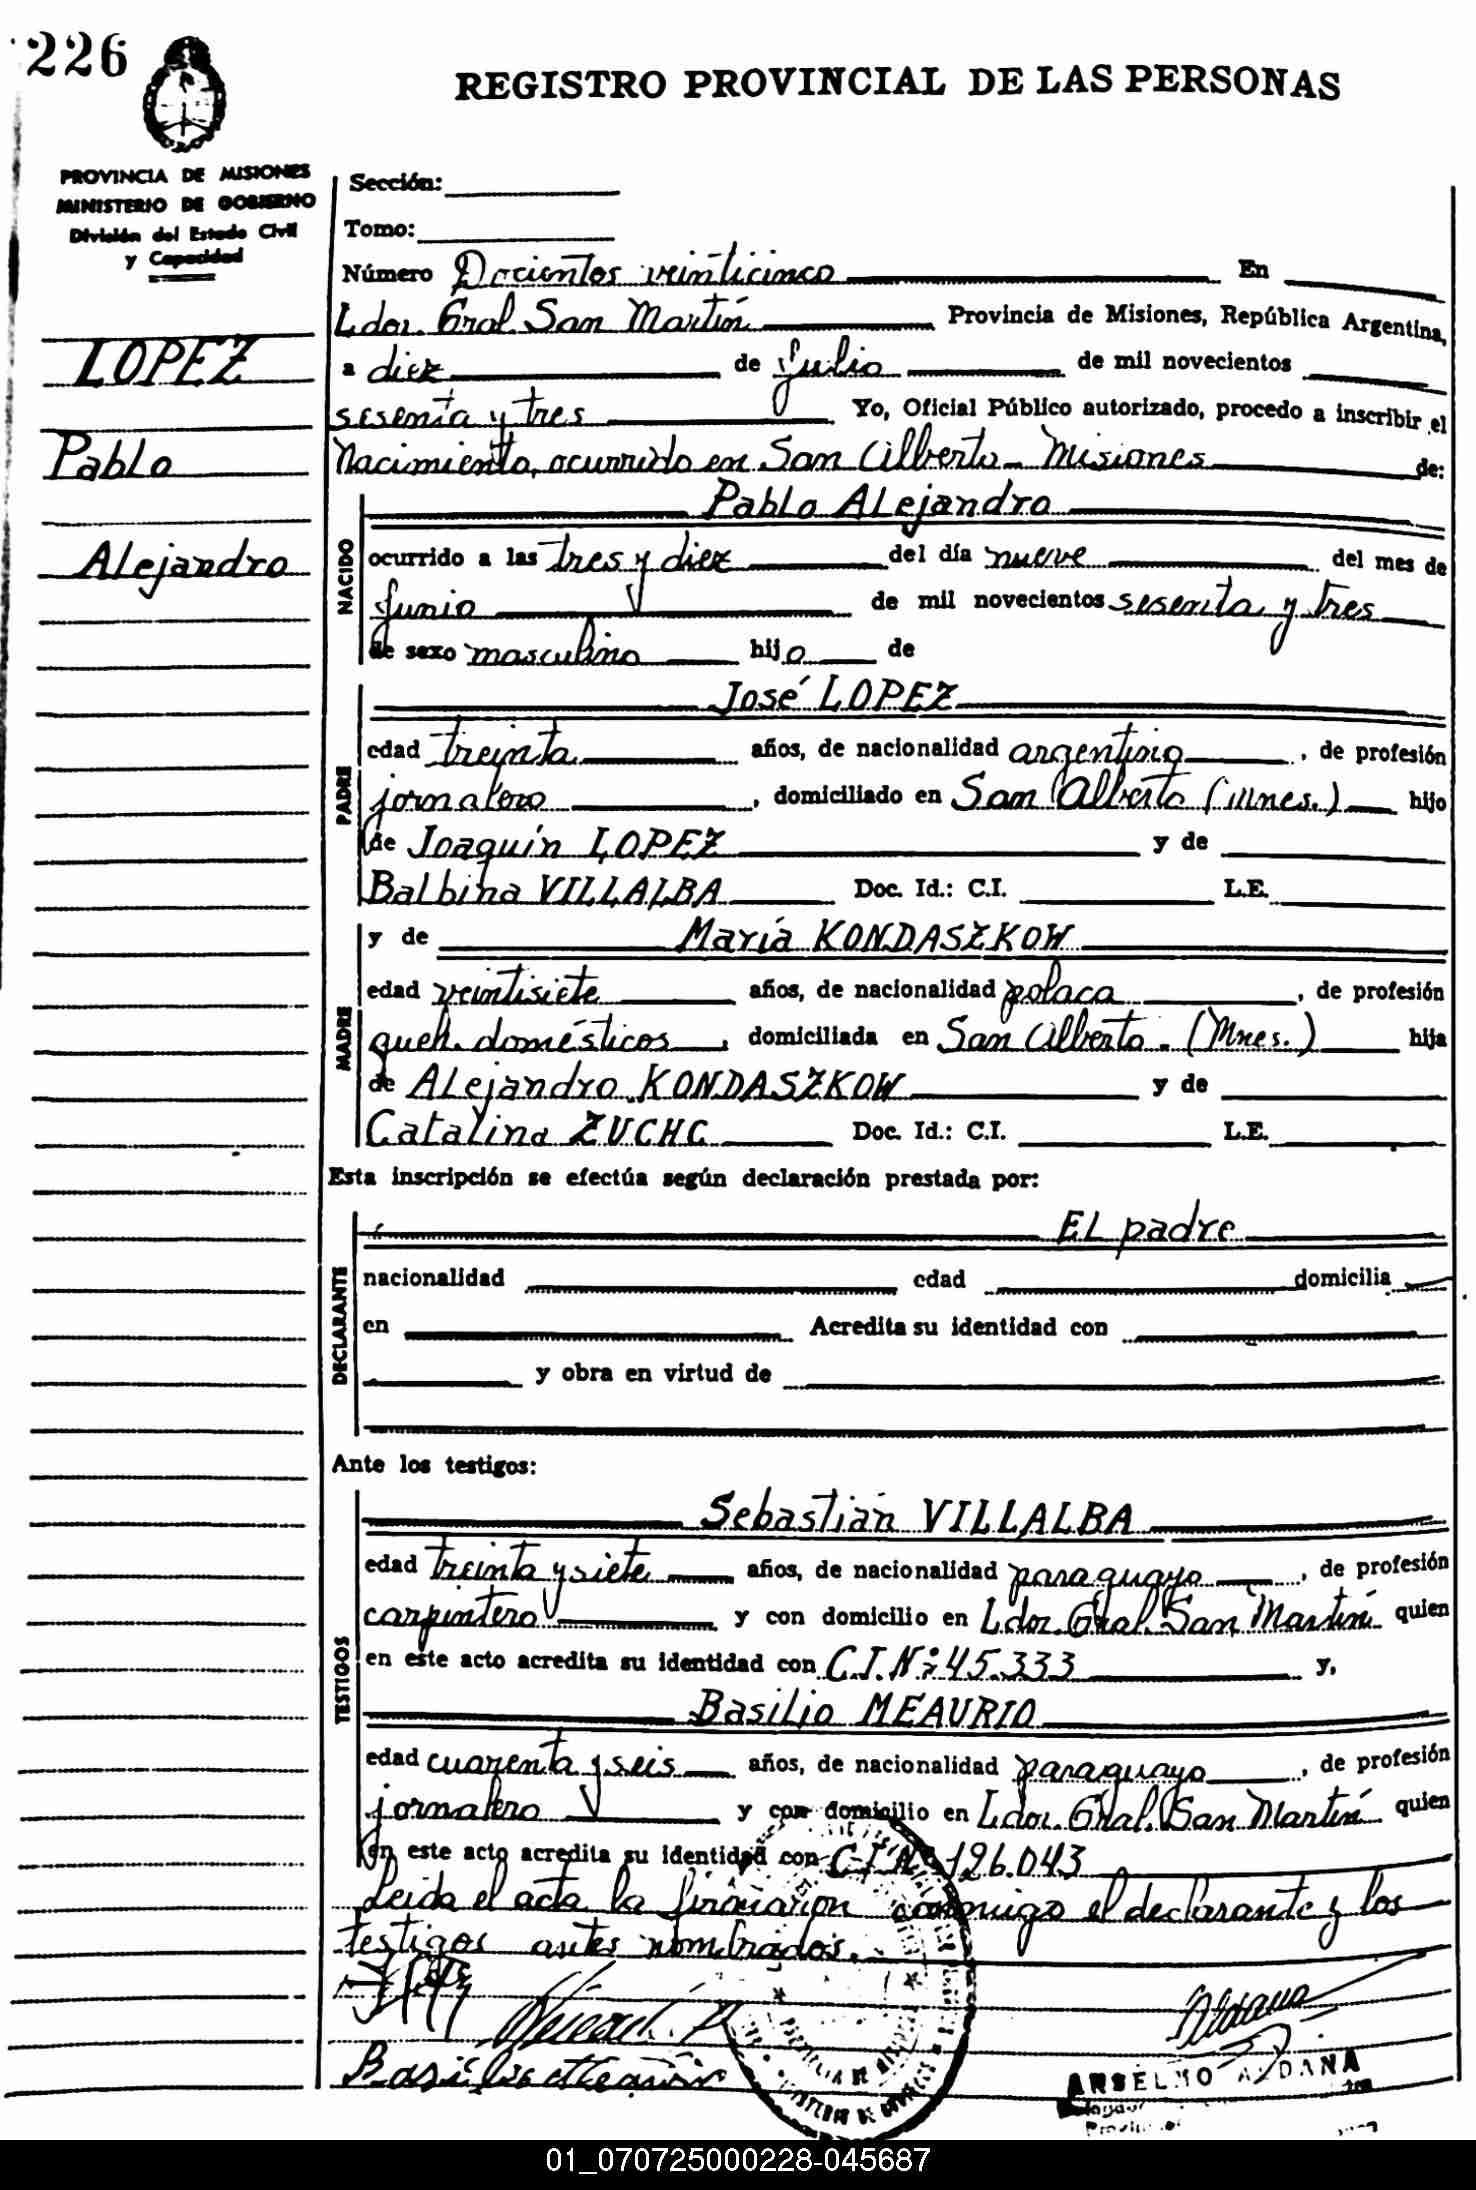 226
REGISTRO PROVINCIAL DE LAS PERSONAS
PROVINCIA DE MISIONES
MINISTERIO DE GOBIERNO
División del Estado Civil
y Capacidad
LOPEZ
Pablo
Alejandro
Sección:
Tomo:
Número Docientos veinticinco En
Ldor. Gral. San Martín Provincia de Misiones, República Argentina,
a diez de Julio de mil novecientos
sesenta y tres Yo, Oficial Público autorizado, procedo a inscribir el
Nacimiento, ocurrido en San Alberto - Misiones de:
NACIDO
Pablo Alejandro
ocurrido a las tres y diez del día nueve del mes de
Junio de mil novecientos sesenta y tres
de sexo masculino hijo de
PADRE
José LOPEZ
edad treinta años, de nacionalidad argentino, de profesión
jornalero, domiciliado en San Alberto (Mnes.) hijo
de Joaquín LOPEZ y de
Balbina VILLALBA Doc. Id.: C.I. L.E.
MADRE
y de María KONDASZKOW
edad veintisiete años, de nacionalidad polaca, de profesión
queh. domésticos, domiciliada en San Alberto - (Mnes.) hija
de Alejandro KONDASZKOW y de
Catalina ZUCHC Doc. Id.: C.I. L.E.
Esta inscripción se efectúa según declaración prestada por:
DECLARANTE
El padre
nacionalidad edad domicilia
en Acredita su identidad con
y obra en virtud de
Ante los testigos:
TESTIGOS
Sebastián VILLALBA
edad treinta y siete años, de nacionalidad paraguayo, de profesión
carpintero y con domicilio en Ldor. Gral. San Martín quien
en este acto acredita su identidad con C.I. Nº 45.333 y,
Basilio MEAURIO
edad cuarenta y seis años, de nacionalidad paraguayo, de profesión
jornalero y con domicilio en Ldor. Gral. San Martín quien
en este acto acredita su identidad con C.I. Nº 196.043
Leida el acta la firmaron conmigo el declarante y los
testigos antes nombrados.
Aldana
Basilio Meaurio
ANSELMO ALDANA
01_070725000228-045687